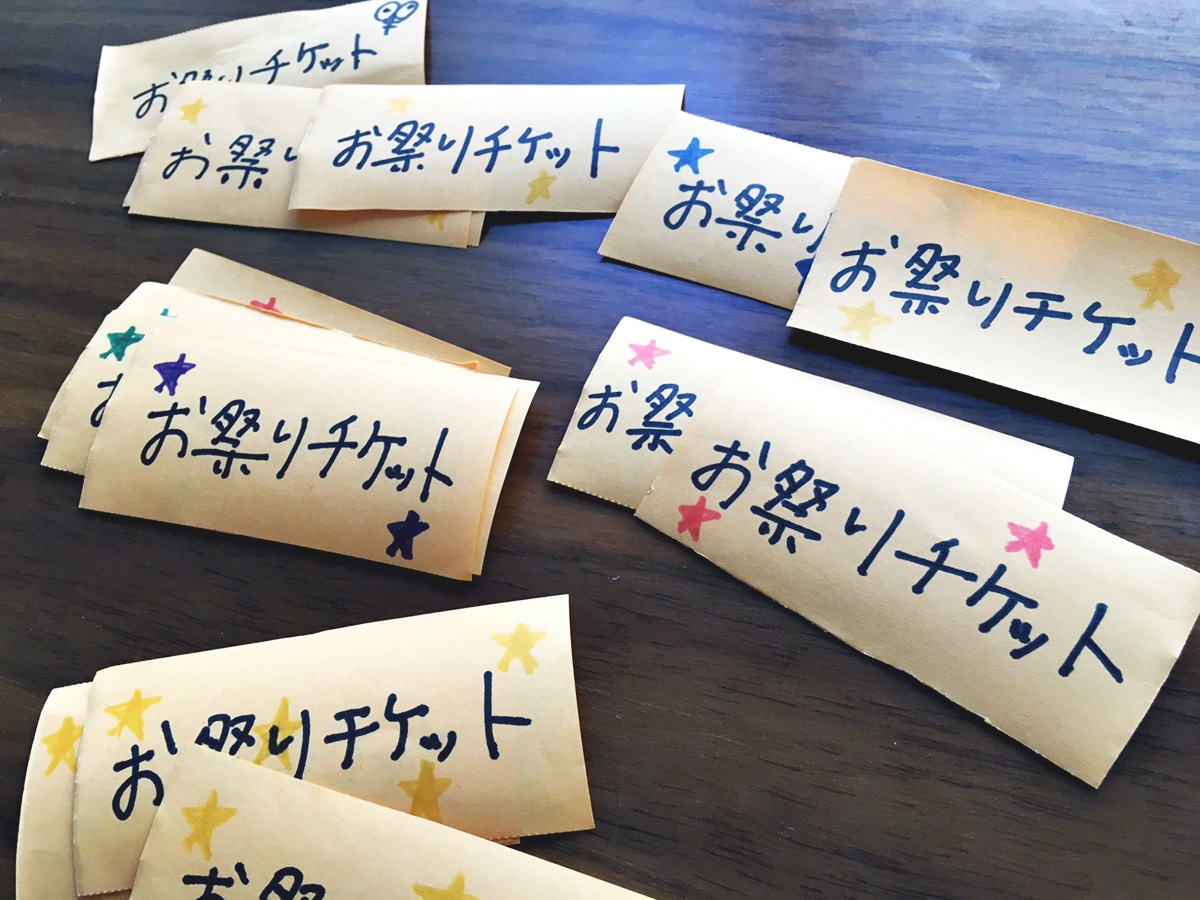 お祭りチケット
お祭り
お祭りチケット
お祭り
お祭りチケット
お
お祭りチケット
お祭
お祭りチケット
お祭りチケット
お祭